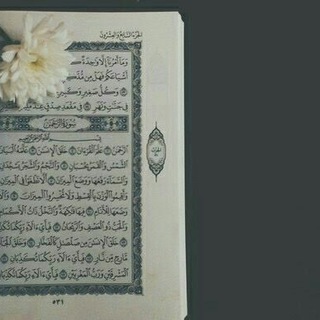 الجزء السابع والعشرون
وَمَآ أَمْرُنَآ إِلَّا وَٰحِدَةٌ
أَشْيَاعَكُمْ فَهَلْ مِن مُّدَّكِرٍ
وَكُلُّ صَغِيرٍ وَكَبِيرٍ
فِي جَنَّٰتٍ وَنَهَرٍ ۝ فِي مَقْعَدِ صِدْقٍ عِندَ
سُورَةُ الرَّحْمَٰن
بِسْمِ ٱللَّهِ ٱلرَّحْمَٰنِ ٱلرَّحِيمِ
ٱلرَّحْمَٰنُ ۝ عَلَّمَ ٱلْقُرْءَانَ ۝ خَلَقَ ٱلْإِنسَٰنَ ۝ عَلَّمَهُ ٱلْبَيَانَ
ٱلشَّمْسُ وَٱلْقَمَرُ بِحُسْبَانٍ ۝ وَٱلنَّجْمُ وَٱلشَّجَرُ يَسْجُدَانِ
وَٱلسَّمَآءَ رَفَعَهَا وَوَضَعَ ٱلْمِيزَانَ ۝ أَلَّا تَطْغَوْا۟ فِي ٱلْمِيزَانِ
وَأَقِيمُوا۟ ٱلْوَزْنَ بِٱلْقِسْطِ وَلَا تُخْسِرُوا۟ ٱلْمِيزَانَ
وَضَعَهَا لِلْأَنَامِ ۝ فِيهَا فَٰكِهَةٌ وَٱلنَّخْلُ ذَاتُ ٱلْأَكْمَامِ
وَٱلْحَبُّ ذُو ٱلْعَصْفِ وَٱلرَّيْحَانُ ۝ فَبِأَيِّ ءَالَآءِ رَبِّكُمَا
خَلَقَ ٱلْإِنسَٰنَ مِن صَلْصَٰلٍ كَٱلْفَخَّارِ ۝ وَخَلَقَ
مَّارِجٍ مِّن نَّارٍ ۝ فَبِأَيِّ ءَالَآءِ رَبِّكُمَا تُكَذِّبَانِ
ٱلْمَشْرِقَيْنِ وَرَبُّ ٱلْمَغْرِبَيْنِ ۝ فَبِأَيِّ ءَالَآءِ رَبِّكُمَا تُكَذِّبَانِ
٥٣١